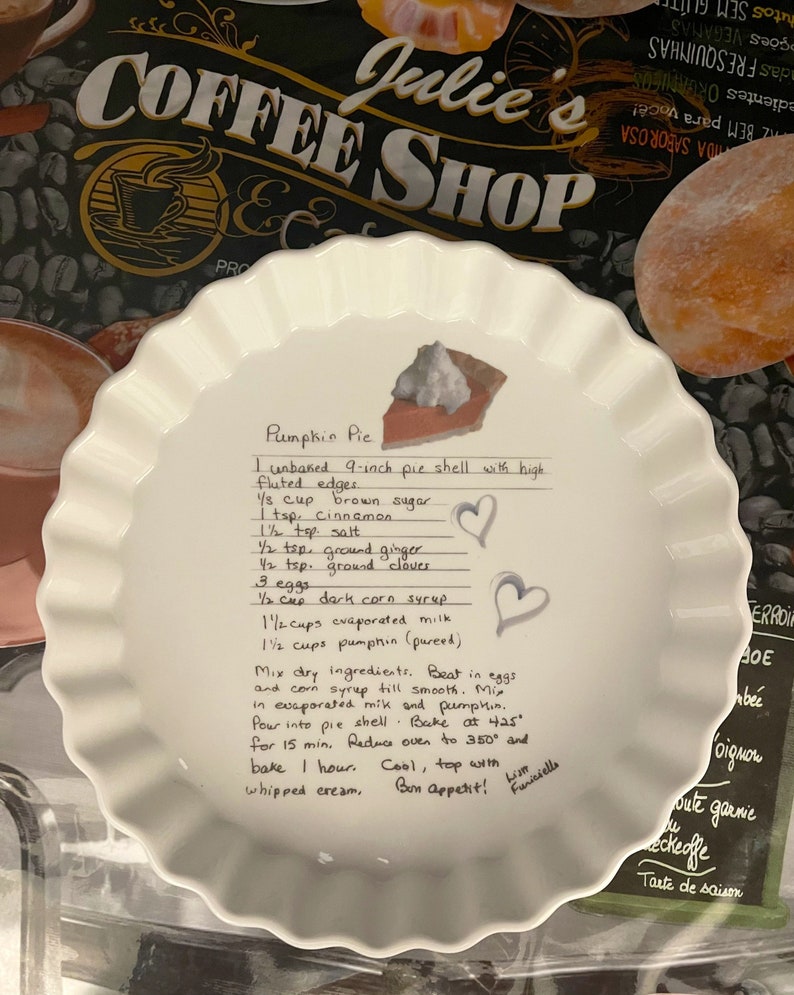 Julie's
COFFEE SHOP
&
PRO
SEM
VEGANAS
FRESQUINHAS
BEM para você!
SABOROSA
Pumpkin Pie
1 unbaked 9-inch pie shell with high
fluted edges.
1/3 cup brown sugar
1 tsp. cinnamon
1 1/2 tsp. salt
1/2 tsp. ground ginger
1/2 tsp. ground cloves
3 eggs
1/2 cup dark corn syrup
1 1/2 cups evaporated milk
1 1/2 cups pumpkin (pureed)
Mix dry ingredients. Beat in eggs
and corn syrup till smooth. Mix
in evaporated milk and pumpkin.
Pour into pie shell. Bake at 425°
for 15 min. Reduce oven to 350° and
bake 1 hour. Cool, top with
whipped cream. Bon appetit!
oignon
garnie
Tarte de saison